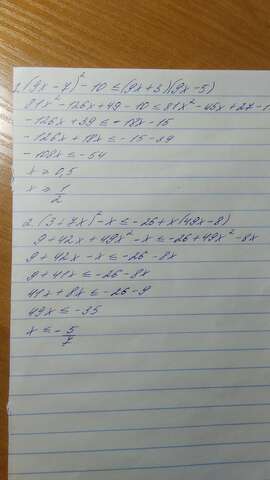 1. (9x - 7)² - 10 ≤ (9x + 3)(9x - 5)
81x² - 126x + 49 - 10 ≤ 81x² - 45x + 27 - 1
- 126x + 39 ≤ - 18x - 15
- 126x + 18x ≤ - 15 - 39
- 108x ≤ - 54
x ≥ 0,5
x ≥ 1/2
2. (3 + 7x)² - x ≤ - 26 + x(49x - 8)
9 + 42x + 49x² - x ≤ - 26 + 49x² - 8x
9 + 42x - x ≤ - 26 - 8x
9 + 41x ≤ - 26 - 8x
41x + 8x ≤ - 26 - 9
49x ≤ - 35
x ≤ - 5/7